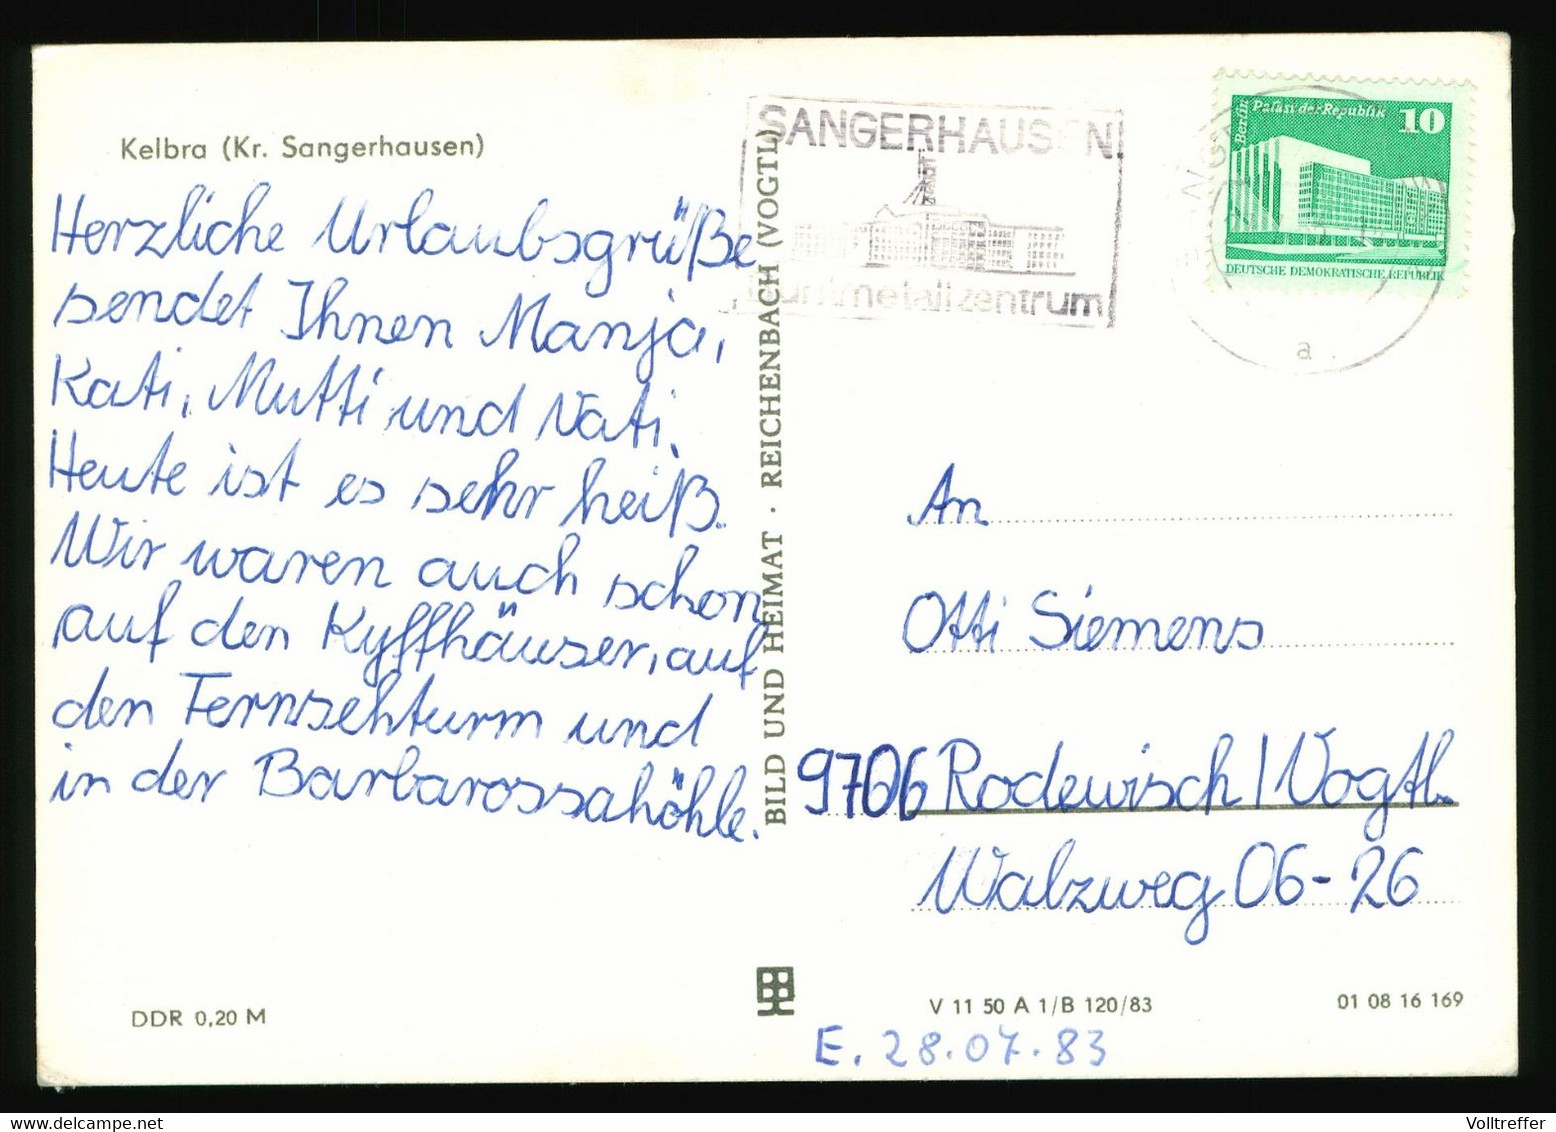 Kelbra (Kr. Sangerhausen)
Herzliche Urlaubsgrüße
sendet Ihnen Manja,
Kati, Mutti und Vati.
Heute ist es sehr heiß.
Wir waren auch schon
auf den Kyffhäuser, auf
den Fernsehturm und
in der Barbarossahöhle.
DDR 0,20 M
BILD UND HEIMAT · REICHENBACH (VOGTL)
SANGERHAUSEN
Buntmetallzentrum
Berlin
Palast der Republik
10
DEUTSCHE DEMOKRATISCHE REPUBLIK
a
An
Otti Siemens
9706 Rodewisch/Vogtl.
Walzweg 06-26
V 11 50 A 1/B 120/83
01 08 16 169
E. 28.07.83
Volltreffer